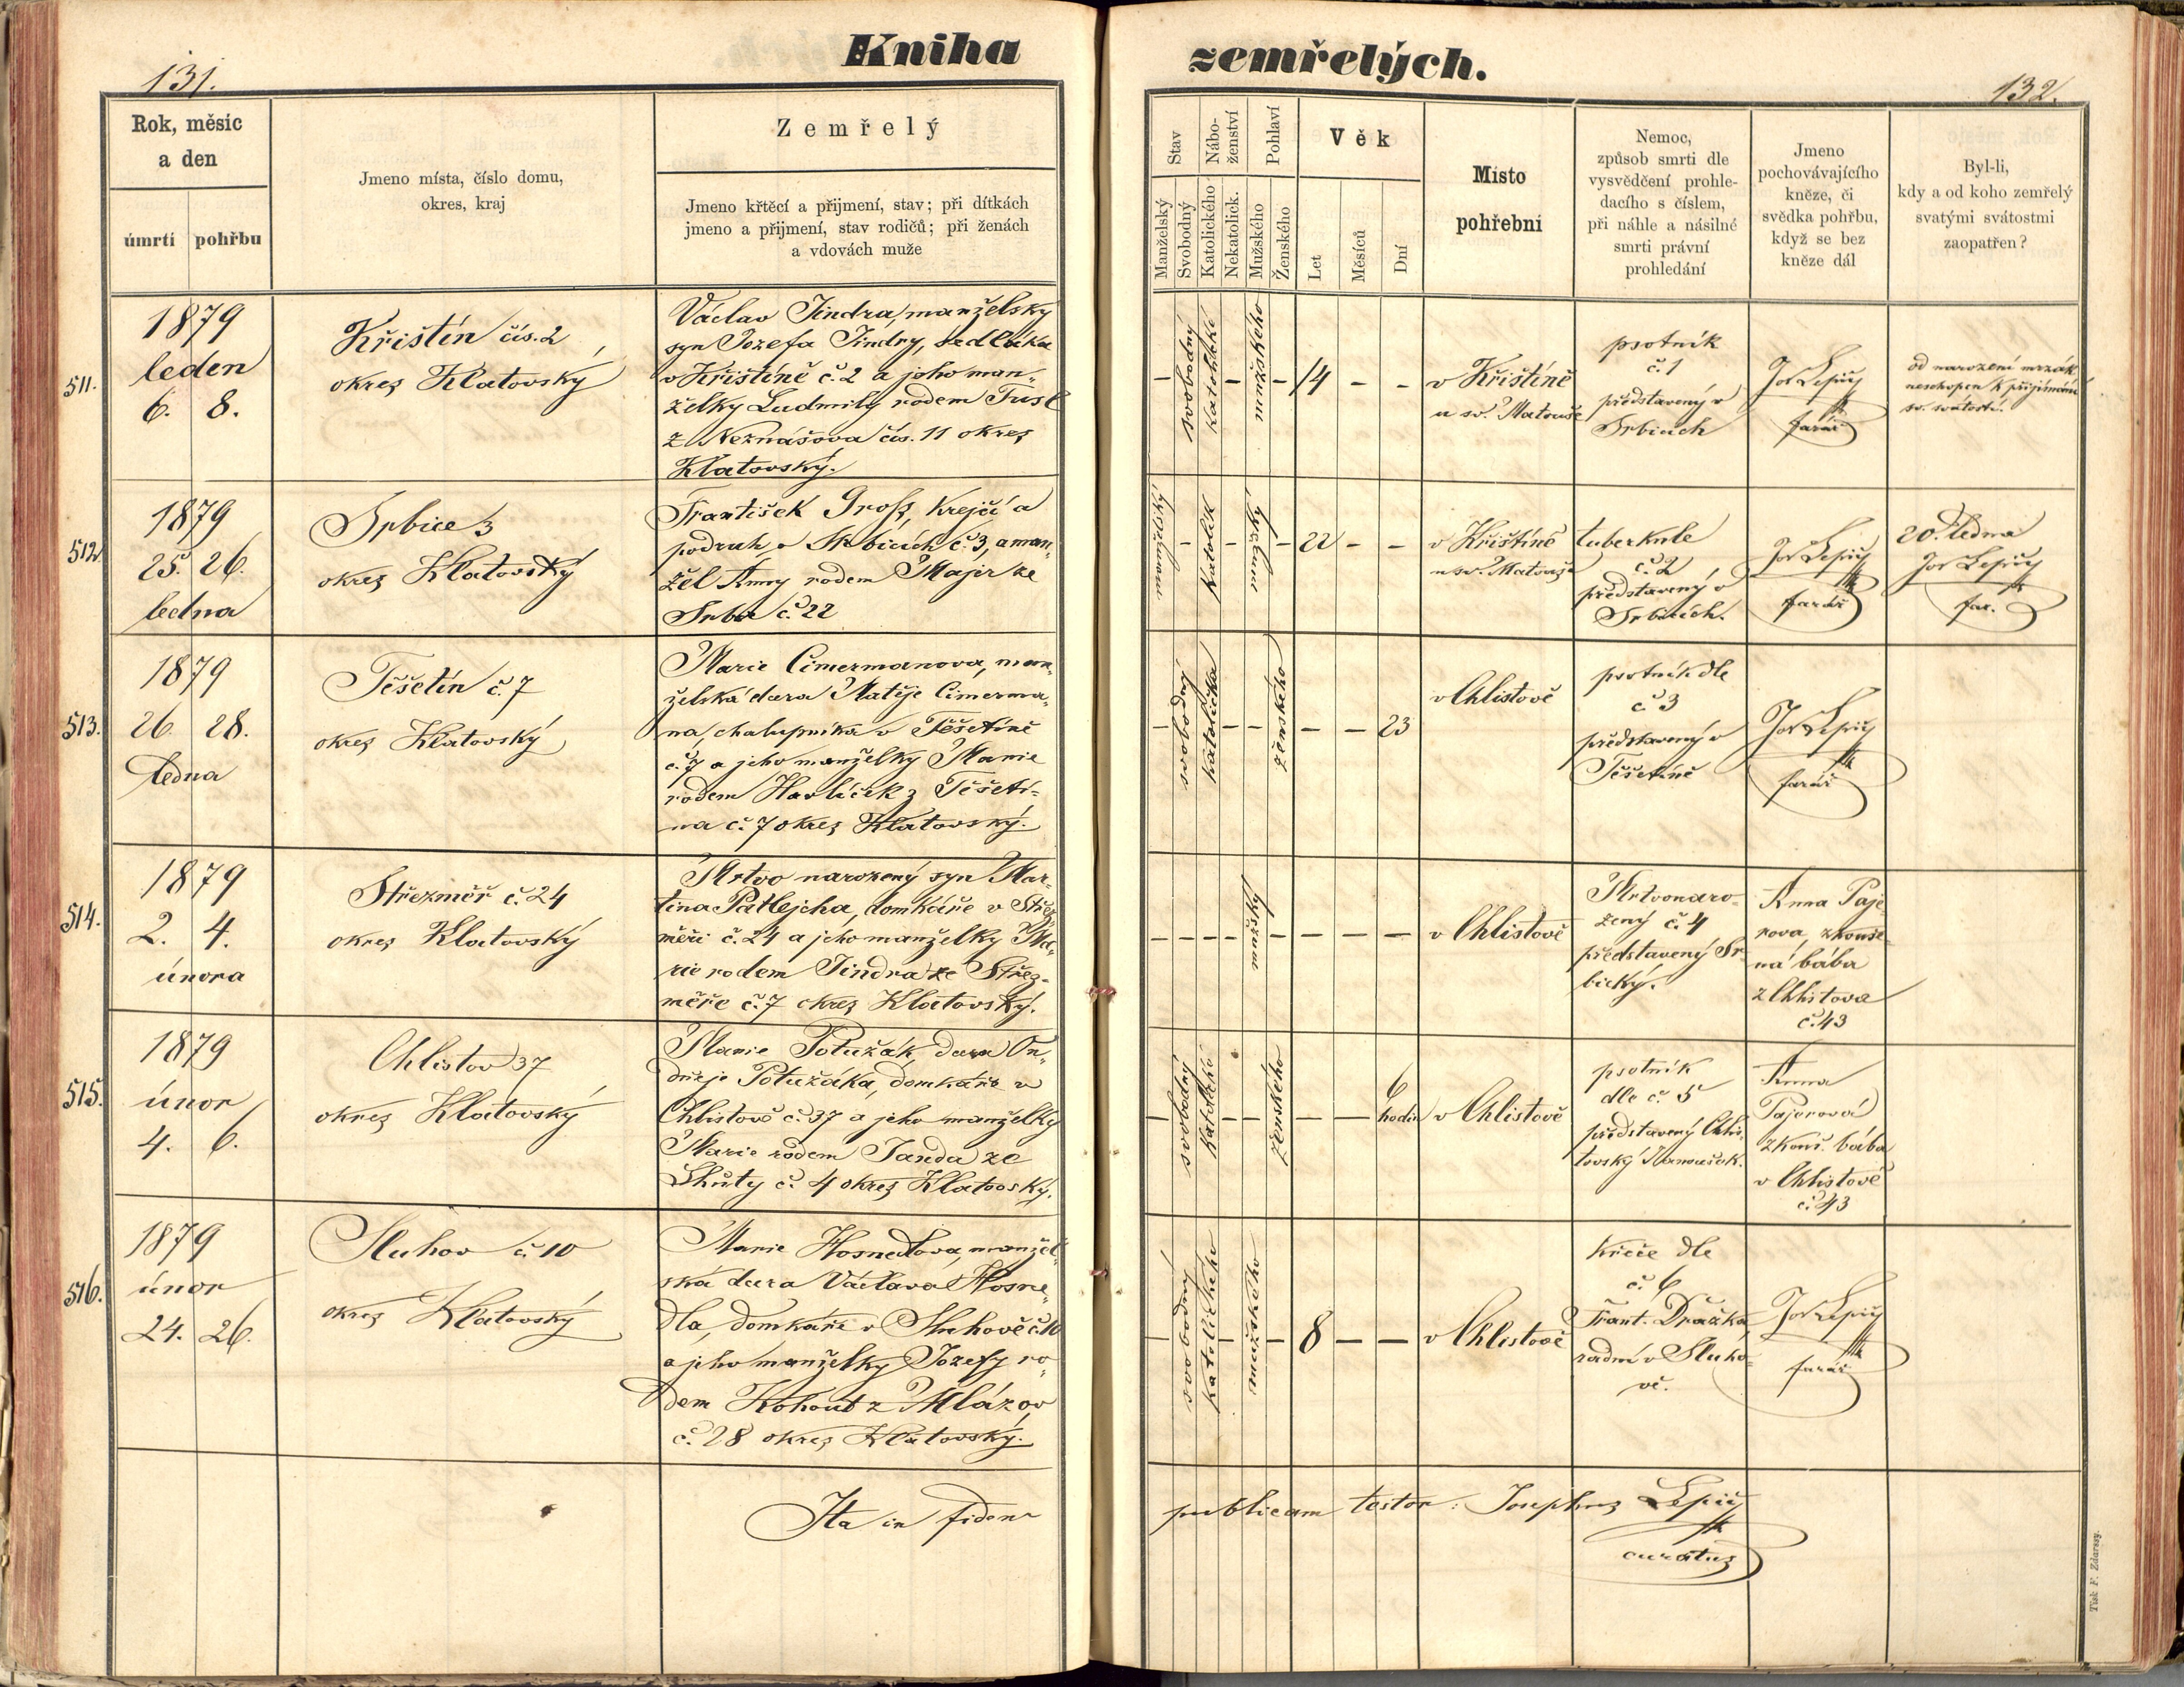 Kniha
zemřelých.
131.
132.
Rok, měsíc
a den
úmrtí pohřbu
Jmeno místa, číslo domu,
okres, kraj
Zemřelý
Jmeno křtěcí a přijmení, stav; při dítkách
jmeno a přijmení, stav rodičů; při ženách
a vdovách muže
Stav
Manželský
Svobodný
Nábo-
ženství
Katolického
Nekatolick.
Pohlaví
Mužského
Ženského
Věk
Let
Měsíců
Dní
Místo
pohřební
Nemoc,
způsob smrti dle
vysvědčení prohle-
dacího s číslem,
při náhle a násilné
smrti právní
prohledání
Jmeno
pochovávajícího
kněze, či
svědka pohřbu,
když se bez
kněze dál
Byl-li,
kdy a od koho zemřelý
svatými svátostmi
zaopatřen?
511.
1879
leden
6. 8.
Křištín čís. 2
okres Klatovský
Václav Jindra, manželský
syn Jozefa Jindry, sedláka
v Křištíně č. 2 a jeho man-
želky Ludmily rodem Tusl
z Neznášova čís. 11 okres
Klatovský.
svobodný
katolické
mužského
14 - -
v Křištíně
u sv. Matouše
psotník
č. 1
představený v
Srbicích
Jos Lepič
farář
od narození mrzák
neschopen k přijímání
sv. svátostí.
512.
1879
25. 26.
ledna
Srbice 3
okres Klatovský
František Gross, krejčí a
podruh v Srbicích č. 3, a man-
žel Anny rodem Majer ze
Srbic č. 22
manželský
katolík
mužský
22 - -
v Křištíně
u sv. Matouše
tuberkule
č. 2
představený v
Srbicích.
Jos Lepič
farář
20. ledna
Jos Lepič
far.
513.
1879
26. 28.
ledna
Těšetín č. 7
okres Klatovský
Marie Cimermanova, man-
želská dcera Matěje Cimerma-
na, chalupníka v Těšetíně
č. 7 a jeho manželky Marie
rodem Havlíček z Těšetí-
na č. 7 okres Klatovský.
svobodný
katolička
ženského
- - 23
v Chlistově
psotník dle
č. 3
představený v
Těšetíně
Jos Lepič
farář
514.
1879
2. 4.
února
Střezměř č. 24
okres Klatovský
Mrtvo narozený syn Mar-
tina Patlejcha, domkáře v Střez-
měři č. 24 a jeho manželky Ma-
rie rodem Jindra ze Střez-
měře č. 7 okres Klatovský.
mužský
- - -
v Chlistově
Mrtvonaro-
zený č. 4
představený Sr-
bický.
Anna Paje-
rova zkouše-
ná bába
z Chlistova
č. 43
515.
1879
únor
4. 6.
Chlistov 37
okres Klatovský
Marie Potužák, dcera On-
dřeje Potužáka, domkáře v
Chlistově č. 37 a jeho manželky
Marie rodem Janda ze
Lhůty č. 4 okres Klatovský.
svobodný
katolického
ženského
- - 6
hodin
v Chlistově
psotník
dle č. 5
představený Chlis-
tovský Hanoušek.
Anna
Pajerová
zkouš. bába
v Chlistově
č. 43
516.
1879
únor
24. 26.
Sluhov č. 10
okres Klatovský
Marie Hosnedlova, manžel-
ská dcera Václava Hosne-
dla, domkáře v Sluhově č. 10
a jeho manželky Jozefy ro-
dem Kohout z Mlázov
č. 28 okres Klatovský.
svobodný
katolického
mužského
8 - -
v Chlistově
křeče dle
č. 6
Frant. Dražka,
radní v Sluho-
vě.
Jos Lepič
farář
Ita in fidem
publicam testor: Josephus Lepič
curatus
Tisk F. Zdarssy.